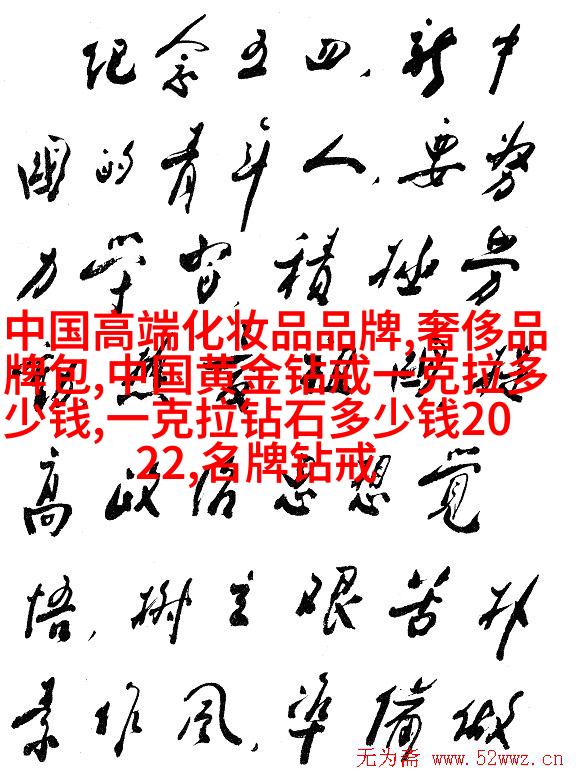 纪念五四,新中
國的青年人,要努
力学習,積極劳
中国高端化妆品品牌,奢侈品
牌包,中国黄金钻戒一克拉多
少钱,一克拉钻石多少钱20
22,名牌钻戒
高政治思想覚
悟,树立艰苦朴
素作风,準備做
无为斋 www.52wwz.cn